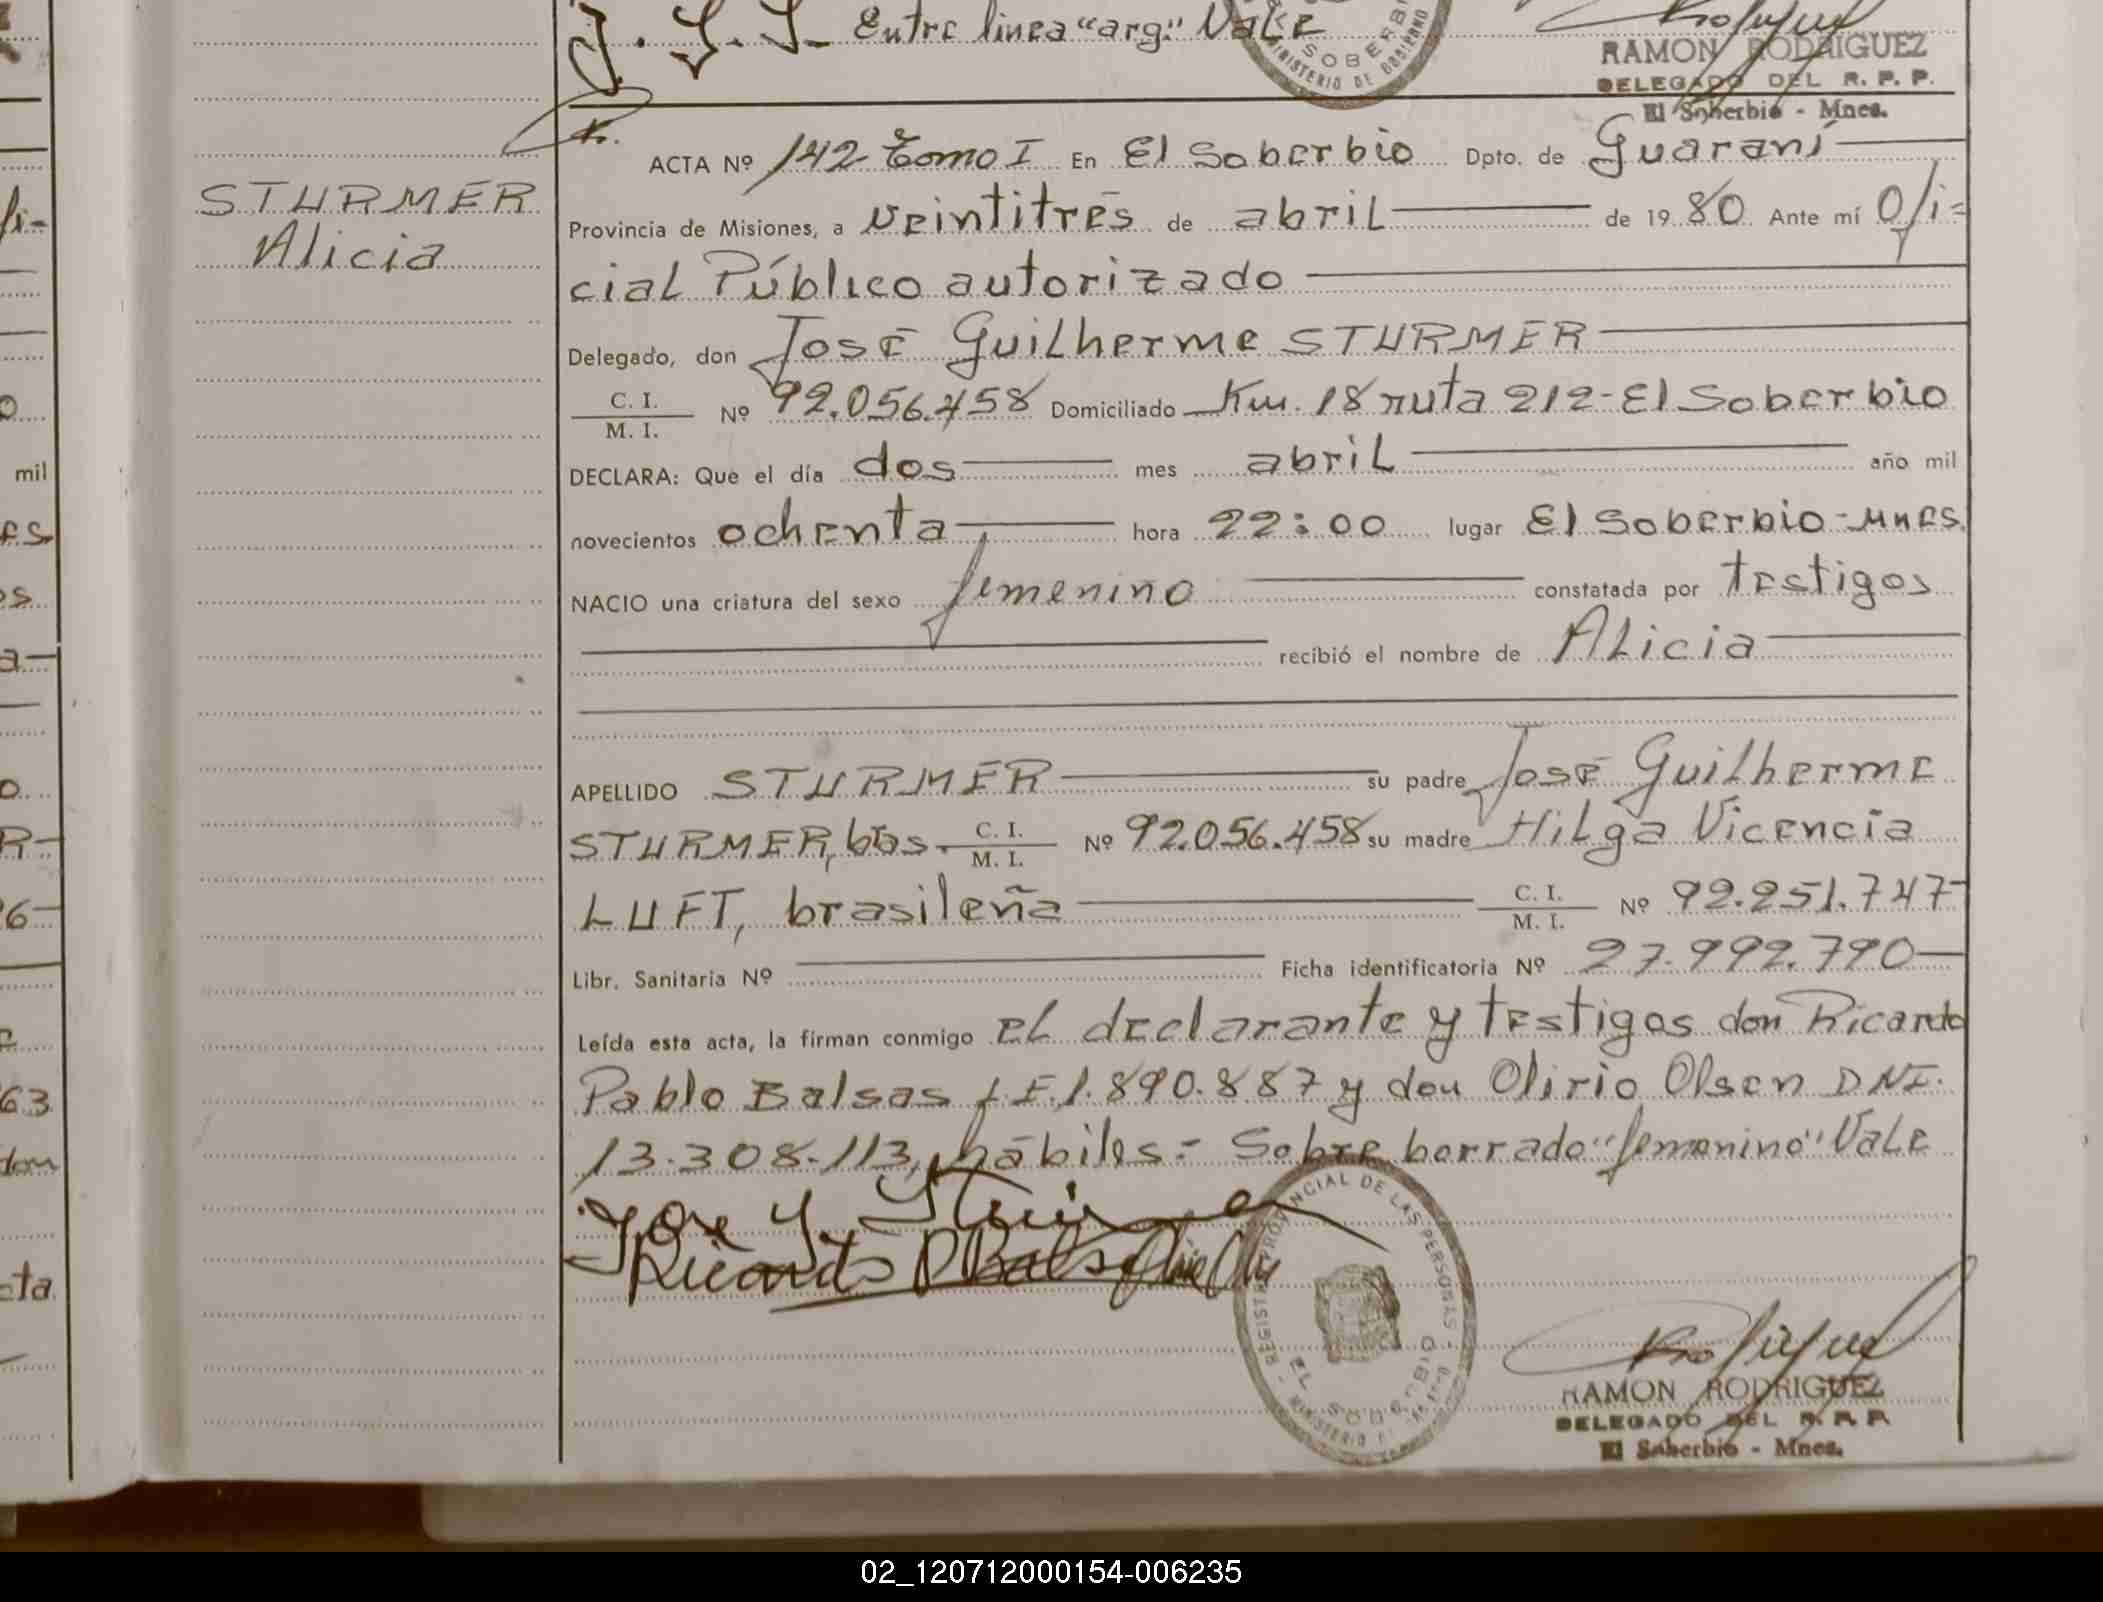 J. G. S. Entre línea "arg." Vale
SOBERBIO
MINISTERIO DE GOBIERNO
RAMON RODRIGUEZ
DELEGADO DEL R. P. P.
El Soberbio - Mnes.
STURMER
Alicia
ACTA Nº 142 Tomo I En El Soberbio Dpto. de Guaraní
Provincia de Misiones, a veintitrés de abril de 1980 Ante mí Ofi=
cial Público autorizado
Delegado, don José Guilherme STURMER
C. I. / M. I. Nº 92.056.458 Domiciliado Km. 18 ruta 212-El Soberbio
DECLARA: Que el día dos mes abril año mil
novecientos ochenta hora 22:00 lugar El Soberbio-Mnes.
NACIO una criatura del sexo femenino constatada por testigos
recibió el nombre de Alicia
APELLIDO STURMER su padre José Guilherme
STURMER, bras. C. I. / M. I. Nº 92.056.458 su madre Hilga Vicencia
LUFT, brasileña C. I. / M. I. Nº 92.251.747
Libr. Sanitaria Nº Ficha identificatoria Nº 27.992.790
Leída esta acta, la firman conmigo el declarante y testigos don Ricardo
Pablo Balsas L.E.1.890.887 y don Olirio Olsen DNI.
13.308.113, hábiles.= Sobre borrado "femenino" Vale
Ricardo P Balsas
REGISTRO PROVINCIAL DE LAS PERSONAS
EL SOBERBIO
RAMON RODRIGUEZ
DELEGADO DEL R. P. P.
El Soberbio - Mnes.
mil
63
don
cta
02_120712000154-006235